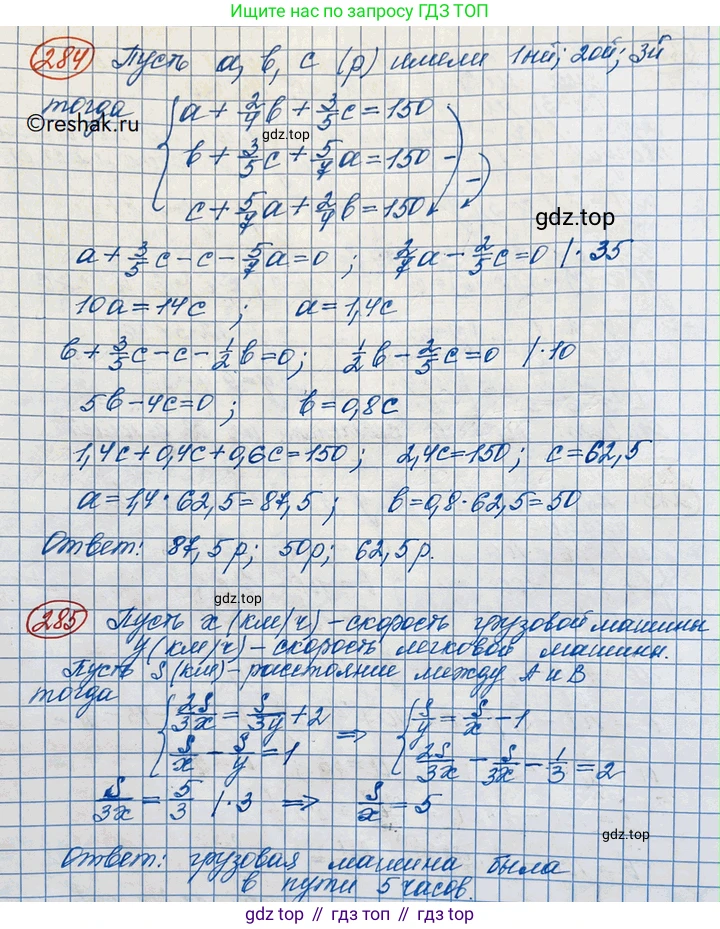 Ищите нас по запросу ГДЗ ТОП
284 Пусть a, b, c (р) имели 1ный; 2ой; 3й
тогда
©reshak.ru
a + 2/4 b + 3/5 c = 150
gdz.top
b + 3/5 c + 5/7 a = 150 -
c + 5/7 a + 2/4 b = 150 -
gdz.top
a + 3/5 c - c - 5/7 a = 0 ; 2/7 a - 2/5 c = 0 /· 35
10a = 14c ; a = 1,4c
b + 3/5 c - c - 1/2 b = 0; 1/2 b - 2/5 c = 0 /·10
5b - 4c = 0 ; b = 0,8c
1,4c + 0,4c + 0,6c = 150 ; 2,4c = 150 ; c = 62,5
a = 1,4 · 62,5 = 87,5 ; b = 0,8 · 62,5 = 50
Ответ: 87,5р; 50р; 62,5р.
gdz.top
285 Пусть x (км/ч) - скорость грузовой машины
y (км/ч) - скорость легковой машины.
Пусть S (км) - расстояние между A и B
тогда
2S/3x = S/3y + 2 => S/y = S/x - 1
S/x - S/y = 1 2S/3x - S/3x - 1/3 = 2
S/3x = 5/3 /· 3 => S/x = 5
gdz.top
Ответ: грузовая машина была
в пути 5 часов.
gdz.top // гдз.топ // gdz.top // гдз.топ